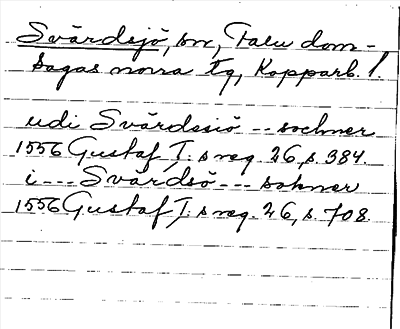 Svärdsjö, sn, Falu dom-
sagas norra tg, Kopparb. l.
udi Svärdssiö -- sochner
1556 Gustaf I:s reg. 26, s. 384.
i --- Svärdsö --- sokner
1556 Gustaf I:s reg. 26, s. 708.